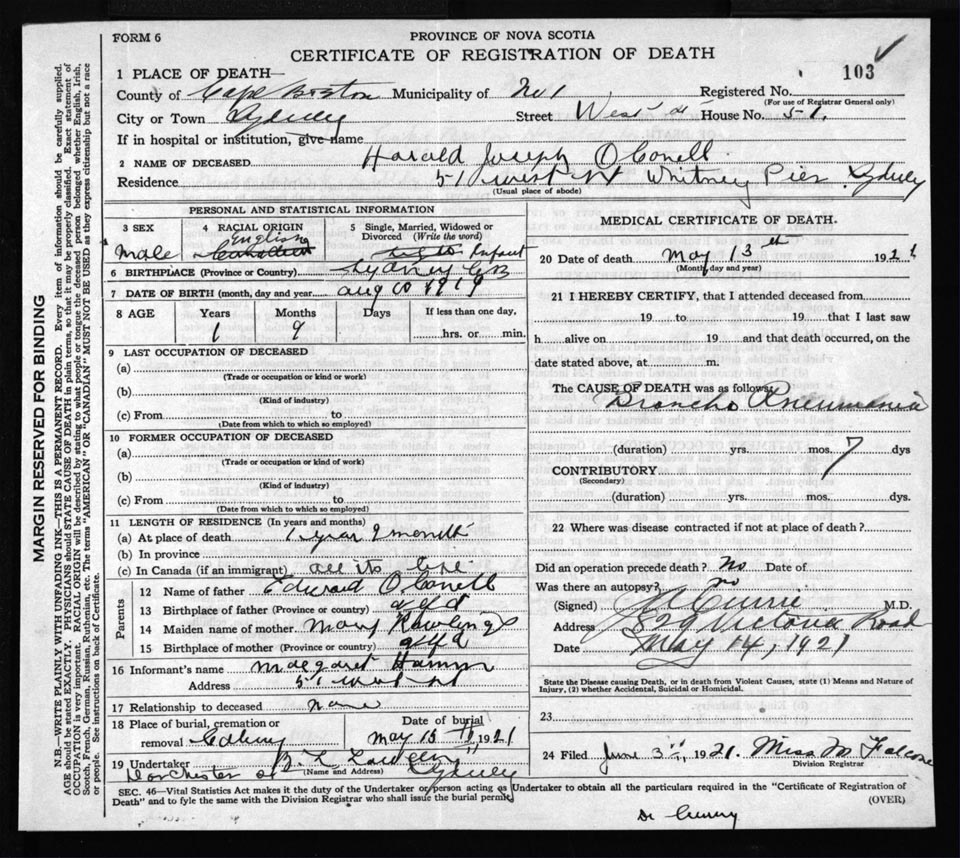 FORM 6
PROVINCE OF NOVA SCOTIA
CERTIFICATE OF REGISTRATION OF DEATH
103
1 PLACE OF DEATH—
County of Cape Breton Municipality of No 1 Registered No.
(For use of Registrar General only)
City or Town Sydney Street West St House No. 51.
If in hospital or institution, give name
2 NAME OF DECEASED Harald Joseph O Conell
Residence 51 West St Whitney Pier Sydney
(Usual place of abode)
PERSONAL AND STATISTICAL INFORMATION
3 SEX 4 RACIAL ORIGIN 5 Single, Married, Widowed or Divorced (Write the word)
Male English Canadian Single Infant
6 BIRTHPLACE (Province or Country) Sydney CB
7 DATE OF BIRTH (month, day and year) Aug 10 1919
8 AGE Years Months Days If less than one day,
1 9 hrs. or min.
9 LAST OCCUPATION OF DECEASED
(a)
(Trade or occupation or kind or work)
(b)
(Kind of industry)
(c) From to
(Date from which to which so employed)
10 FORMER OCCUPATION OF DECEASED
(a)
(Trade or occupation or kind or work)
(b)
(Kind of industry)
(c) From to
(Date from which to which so employed)
11 LENGTH OF RESIDENCE (In years and months)
(a) At place of death 1 year 9 month
(b) In province
(c) In Canada (if an immigrant) all its life
Parents
12 Name of father Edward O Conell
13 Birthplace of father (Province or country) nfld
14 Maiden name of mother Mary Rawlings
15 Birthplace of mother (Province or country) nfld
16 Informant's name Margaret Hamm
Address 51 West St
17 Relationship to deceased none
18 Place of burial, cremation or removal Date of burial
May 15 th 1921
19 Undertaker
(Name and Address)
Dorchester St Sydney
MEDICAL CERTIFICATE OF DEATH.
20 Date of death May 13th 1921
(Month, day and year)
21 I HEREBY CERTIFY, that I attended deceased from
19 to 19 that I last saw
h alive on 19 and that death occurred, on the
date stated above, at m.
The CAUSE OF DEATH was as follows:
Broncho Pneumonia
(duration) yrs. mos. 7 dys
CONTRIBUTORY
(Secondary)
(duration) yrs. mos. dys.
22 Where was disease contracted if not at place of death?
Did an operation precede death? No Date of
Was there an autopsy? no
(Signed) Currie M.D.
Address 829 Victoria Road
Date May 14, 1921
State the Disease causing Death, or in death from Violent Causes, state (1) Means and Nature of Injury, (2) whether Accidental, Suicidal or Homicidal.
23
24 Filed June 3rd, 1921. Miss M
Division Registrar
SEC. 46—Vital Statistics Act makes it the duty of the Undertaker or person acting as Undertaker to obtain all the particulars required in the "Certificate of Registration of
Death" and to fyle the same with the Division Registrar who shall issue the burial permit.
(OVER)
MARGIN RESERVED FOR BINDING
N.B.—WRITE PLAINLY WITH UNFADING INK—THIS IS A PERMANENT RECORD. Every item of information should be carefully supplied.
AGE should be stated EXACTLY. PHYSICIANS should STATE CAUSE OF DEATH in plain terms, so that it may be properly classified. Exact statement of
OCCUPATION is very important. RACIAL ORIGIN will be described by stating to what people or tongue the deceased person belonged whether English, Irish,
Scotch, French, German, Russian, Ruthenian, etc. The terms "AMERICAN" OR "CANADIAN" MUST NOT BE USED as they express citizenship but not a race
or people. See instructions on back of Certificate.